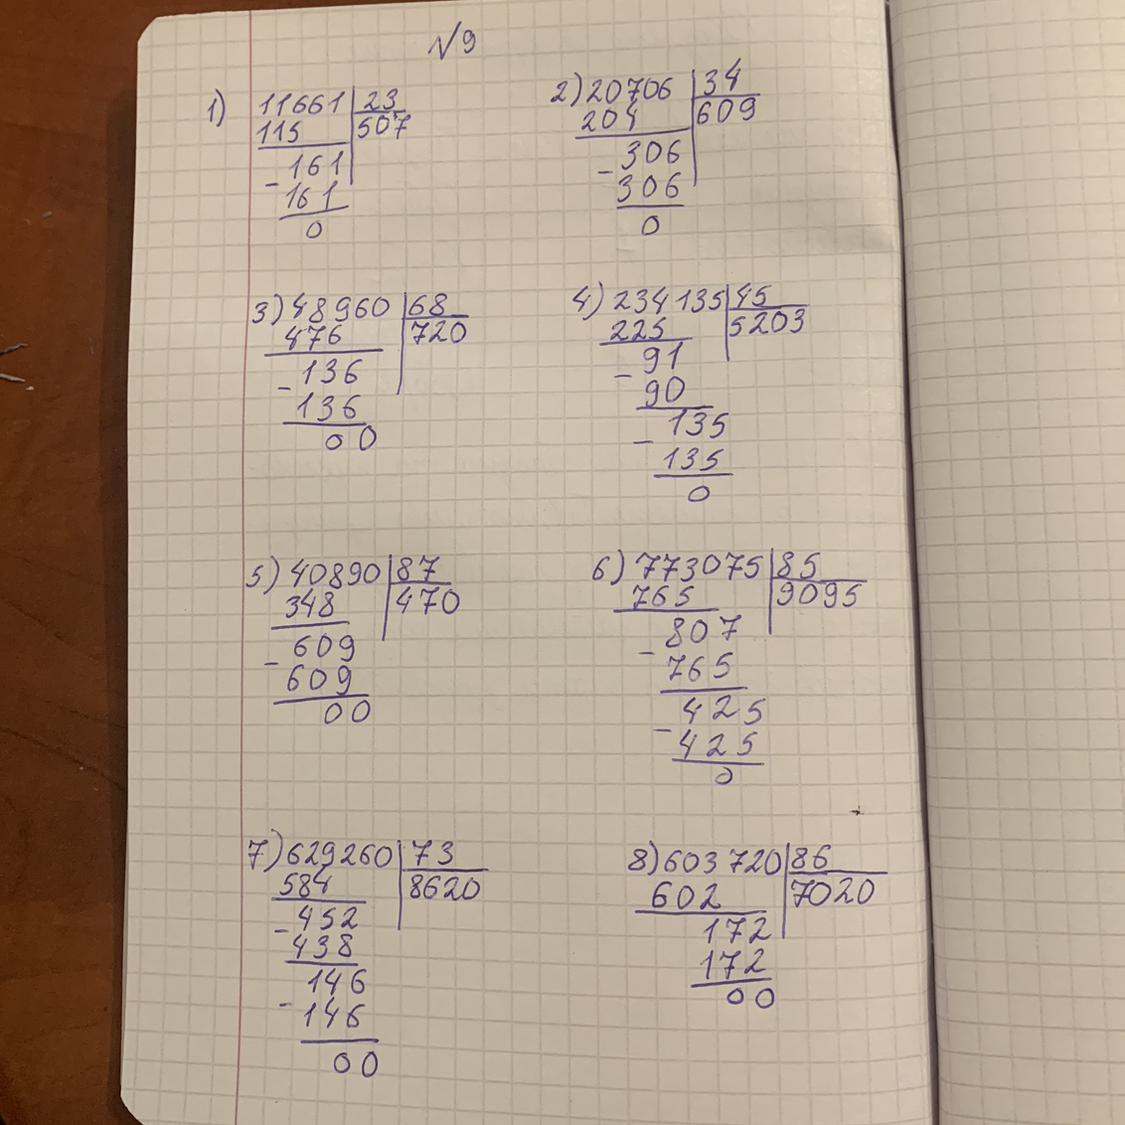 №9
1) 11661 | 23
115 | 507
- 161
161
0
2) 20706 | 34
204 | 609
- 306
306
0
3) 48960 | 68
476 | 720
- 136
136
00
4) 234135 | 45
225 | 5203
- 91
90
- 135
135
0
5) 40890 | 87
348 | 470
- 609
609
00
6) 773075 | 85
765 | 9095
- 807
765
- 425
425
0
7) 629260 | 73
584 | 8620
- 452
438
- 146
146
00
8) 603720 | 86
602 | 7020
172
172
00